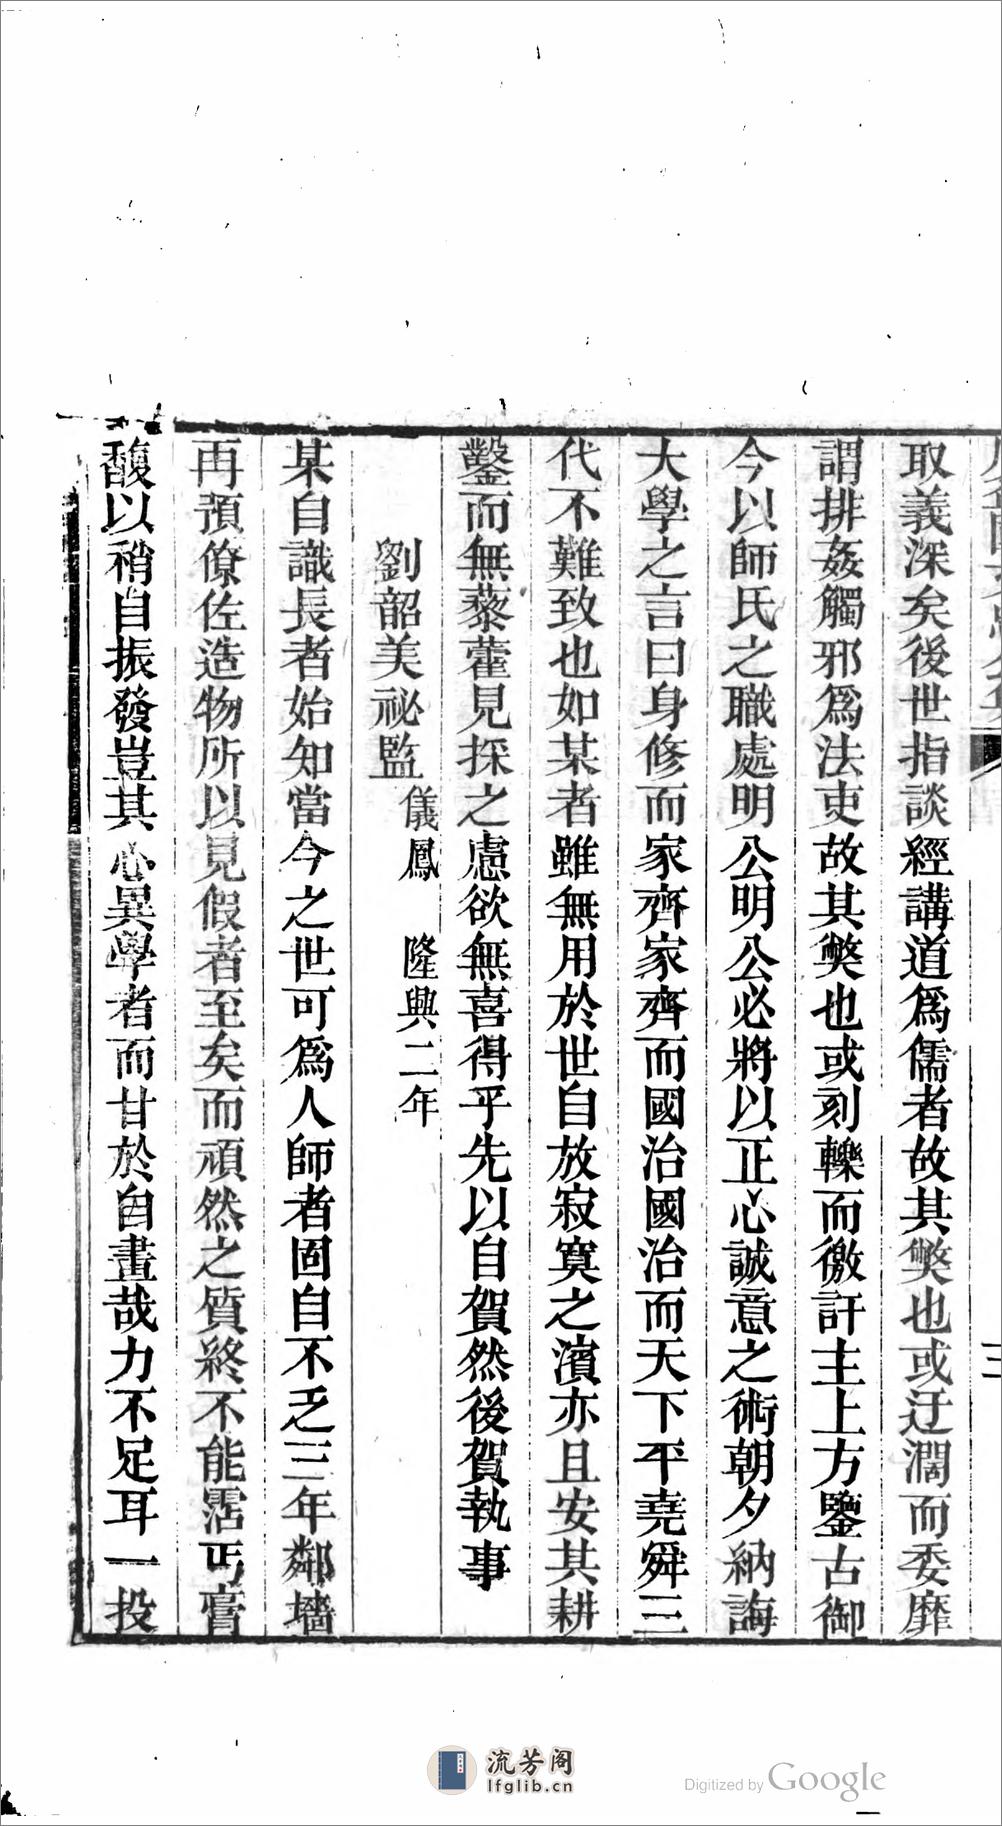 取義深矣後世指談經講道爲儒者故其獘也或迂濶而委靡
謂排姦觸邪爲法吏故其獘也或刻轢而徼訐主上方鑒古御
今以師氏之職處明公明公必將以正心誠意之術朝夕納誨
大學之言曰身修而家齊家齊而國治國治而天下平堯舜三
代不難致也如某者雖無用於世自放寂寞之濱亦且安其耕
鑿而無藜藿見採之慮欲無喜得乎先以自賀然後賀執事
劉韶美祕監儀鳳 隆興二年
某自識長者始知當今之世可爲人師者固自不乏三年鄰墻
再預僚佐造物所以見假者至矣而頑然之質終不能霑丐膏
馥以稍自振發豈其心異學者而甘於自畫哉力不足耳一投
流芳阁
lfglib.cn
Digitized by Google